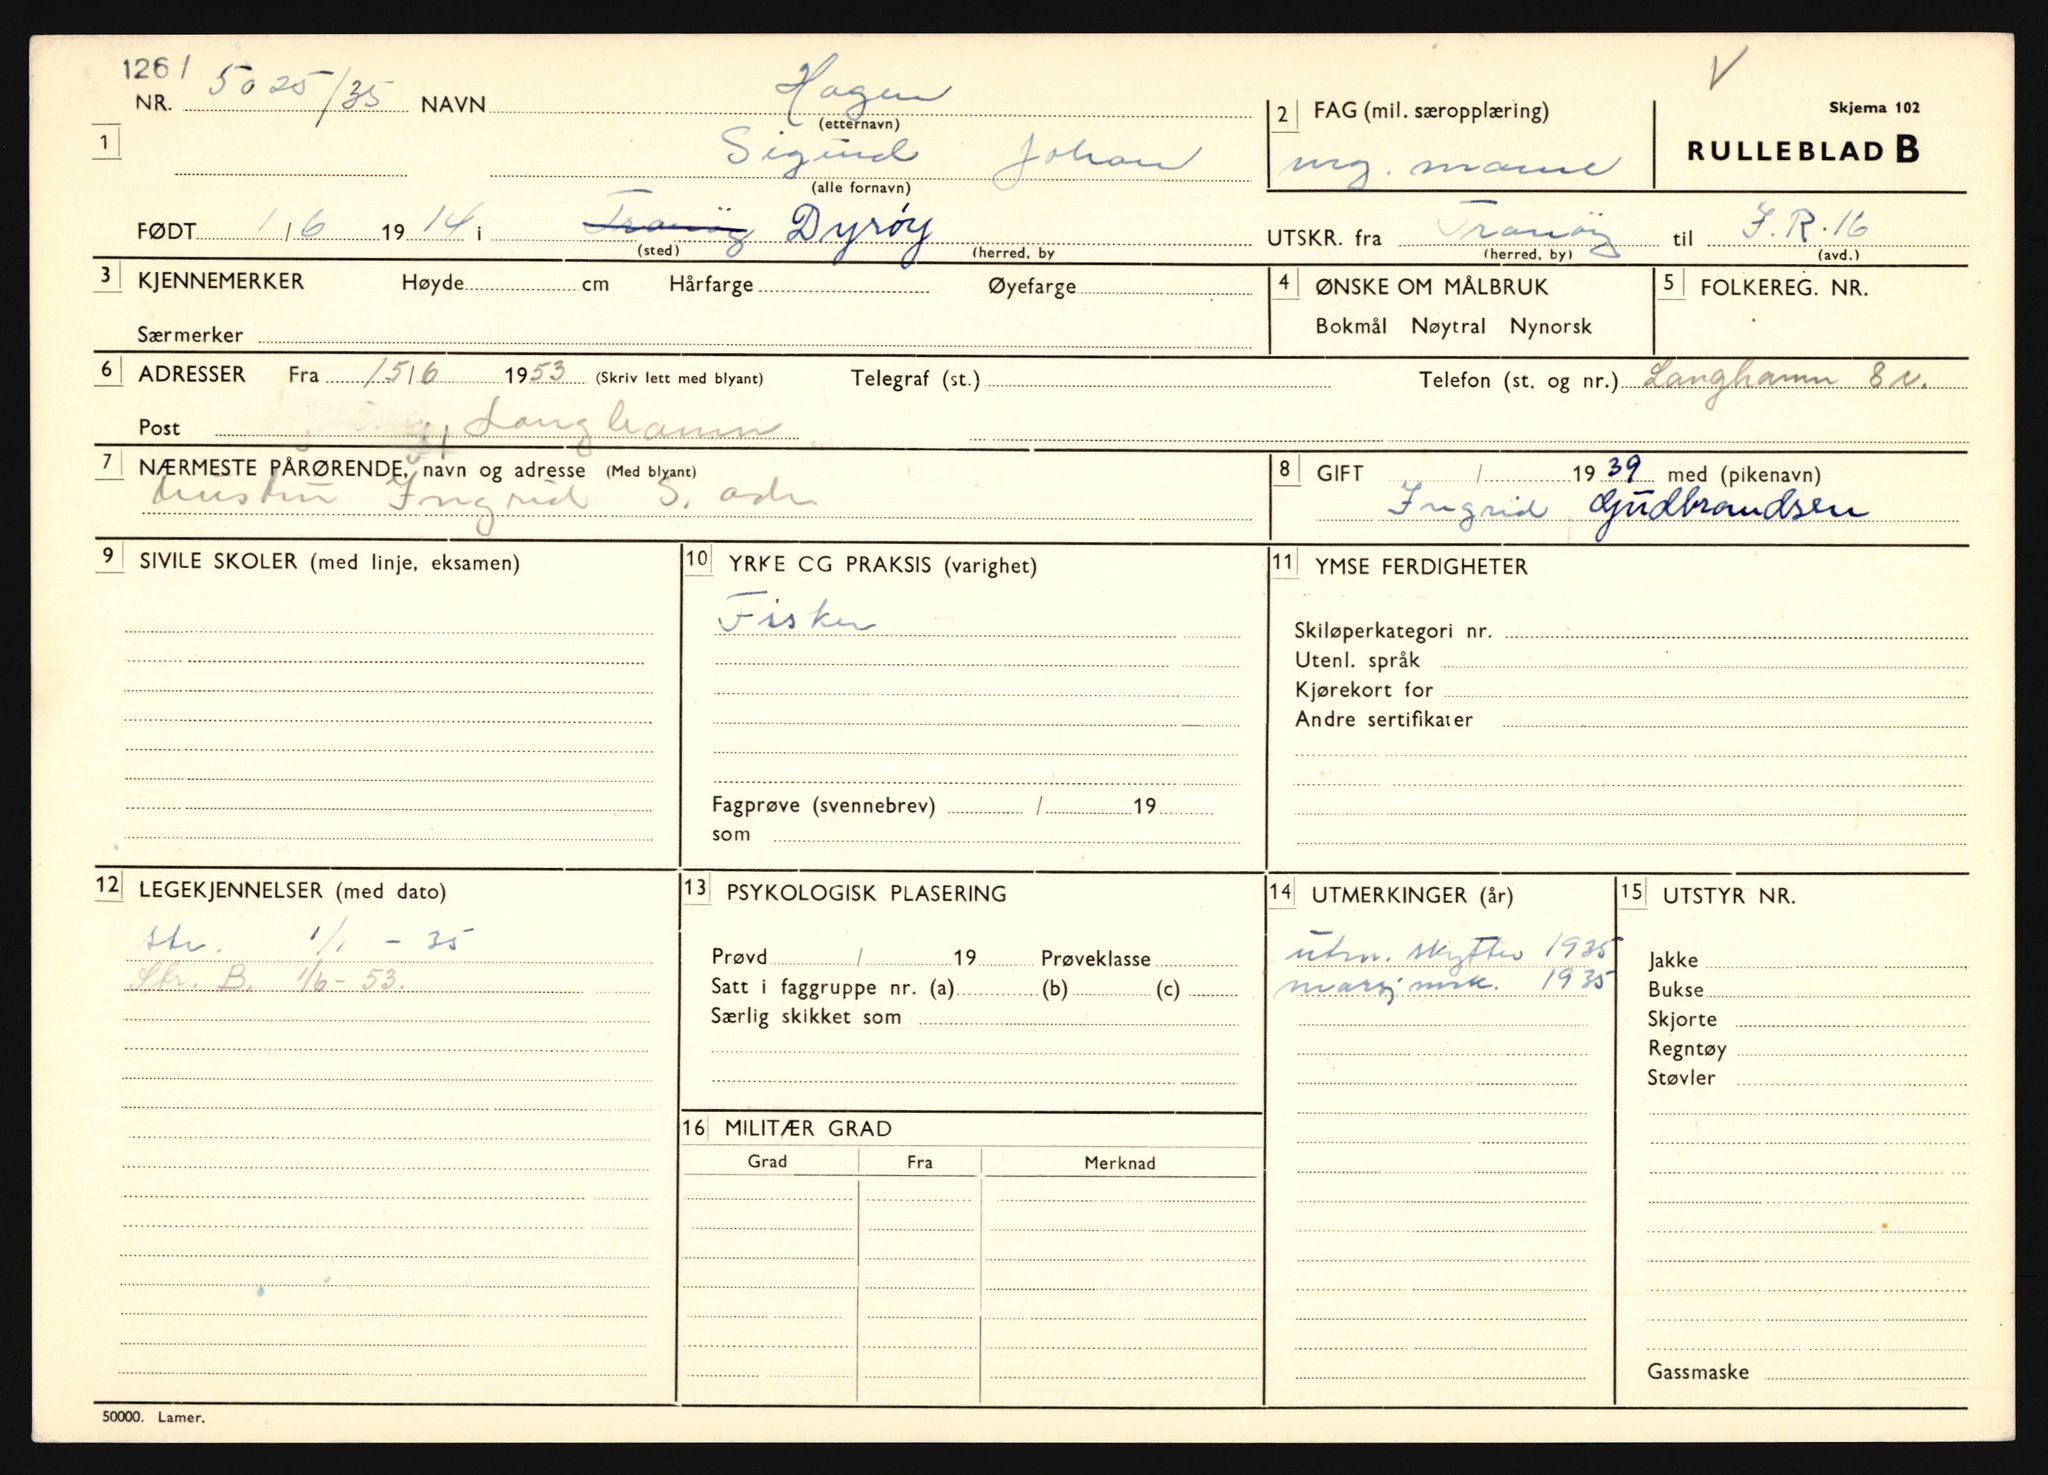 1261
NR. 5025/35 NAVN Hagen
(etternavn)
1 Sigurd Johan
(alle fornavn)
2 FAG (mil. særopplæring)
mg. mann
Skjema 102
RULLEBLAD B
V
FØDT 1/6 1914 i Tranöy Dyrøy
(sted) (herred, by
UTSKR. fra Tranöy til I.R.16
(herred, by) (avd.)
3 KJENNEMERKER Høyde cm Hårfarge Øyefarge
Særmerker
4 ØNSKE OM MÅLBRUK
Bokmål Nøytral Nynorsk
5 FOLKEREG. NR.
6 ADRESSER Fra 15/6 1953 (Skriv lett med blyant) Telegraf (st.) Telefon (st. og nr.) Langhamn 8 v.
Post Langhamn
7 NÆRMESTE PÅRØRENDE, navn og adresse (Med blyant)
hustru Ingrid S. adr
8 GIFT / 1939 med (pikenavn)
Ingrid Gudbrandsen
9 SIVILE SKOLER (med linje, eksamen)
10 YRKE CG PRAKSIS (varighet)
Fisker
Fagprøve (svennebrev) / 19
som
11 YMSE FERDIGHETER
Skiløperkategori nr.
Utenl. språk
Kjørekort for
Andre sertifikater
12 LEGEKJENNELSER (med dato)
str. 1/1 - 35
Str. B. 1/6 - 53.
13 PSYKOLOGISK PLASERING
Prøvd / 19 Prøveklasse
Satt i faggruppe nr. (a) (b) (c)
Særlig skikket som
14 UTMERKINGER (år)
utm. skytter 1935
marsjmrk. 1935
15 UTSTYR NR.
Jakke
Bukse
Skjorte
Regntøy
Støvler
Gassmaske
16 MILITÆR GRAD
Grad Fra Merknad
50000. Lamer.